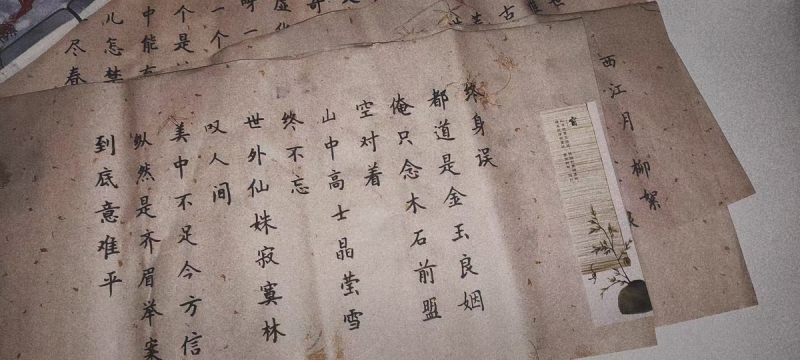 西江月 柳絮
终身误
都道是金玉良姻
俺只念木石前盟
空对着
山中高士晶莹雪
终不忘
世外仙姝寂寞林
叹人间
美中不足今方信
纵然是齐眉举案
到底意难平
古
一个
个是
中能有
儿怎禁
尽春